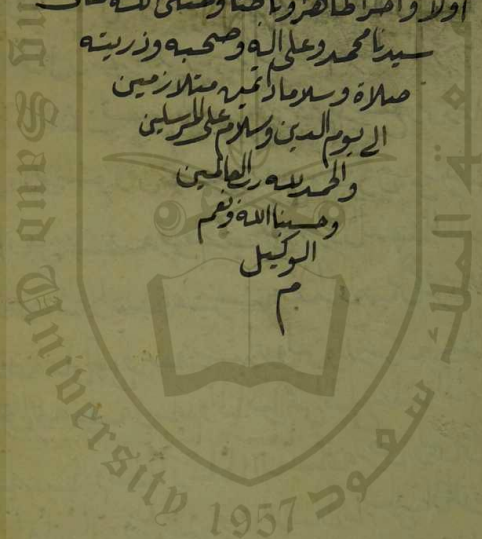 اولا واخرا ظاهرا وباطنا وصلى الله على
سيدنا محمد وعلى اله وصحبه وذريته
صلاة وسلاما دئمين متلازمين
الى يوم الدين وسلام على المرسلين
والحمد لله رب العالمين
وحسبنا الله ونعم
الوكيل
م
King Saud University 1957 جامعة الملك سعود